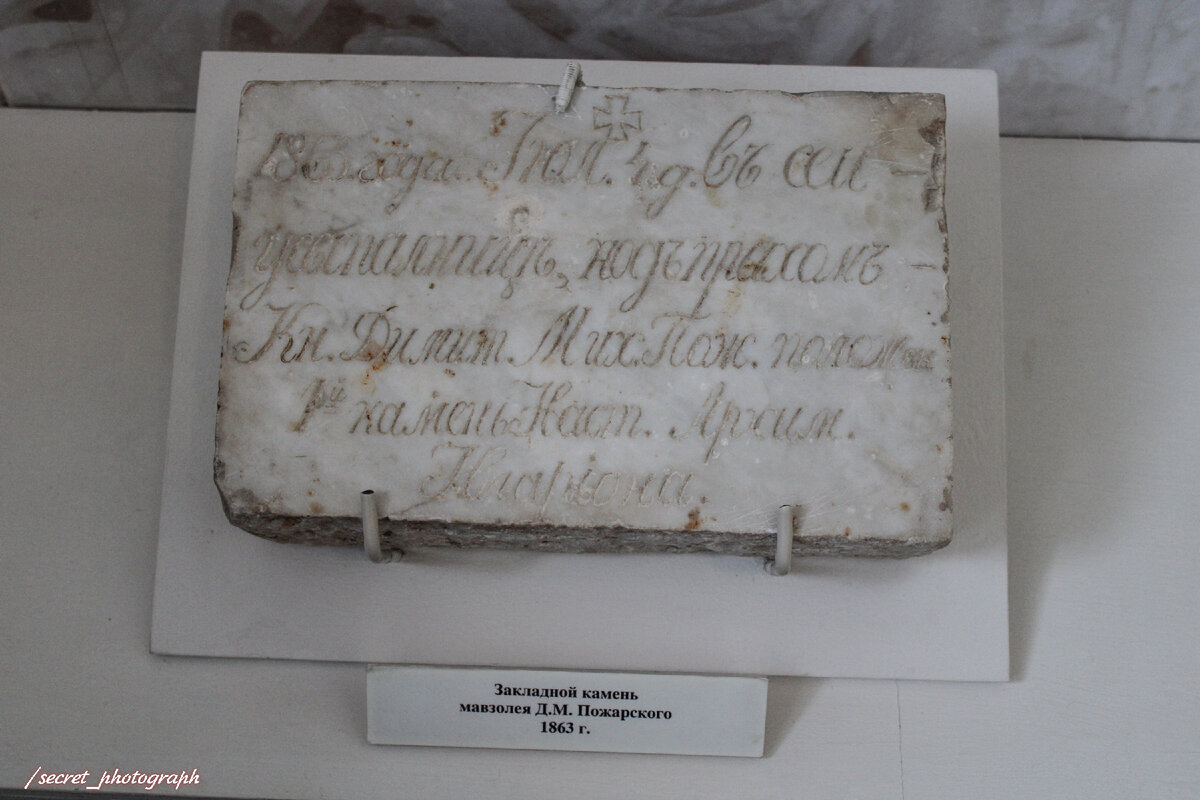 1863 года. Іюл. 4 д. въ сей –
усыпалницѣ, надъ прахомъ –
Кн. Димит. Мих. Пож. полож
1ый камень Наст. Архим.
Иларіона.
Закладной камень
мавзолея Д.М. Пожарского
1863 г.
/secret_photograph